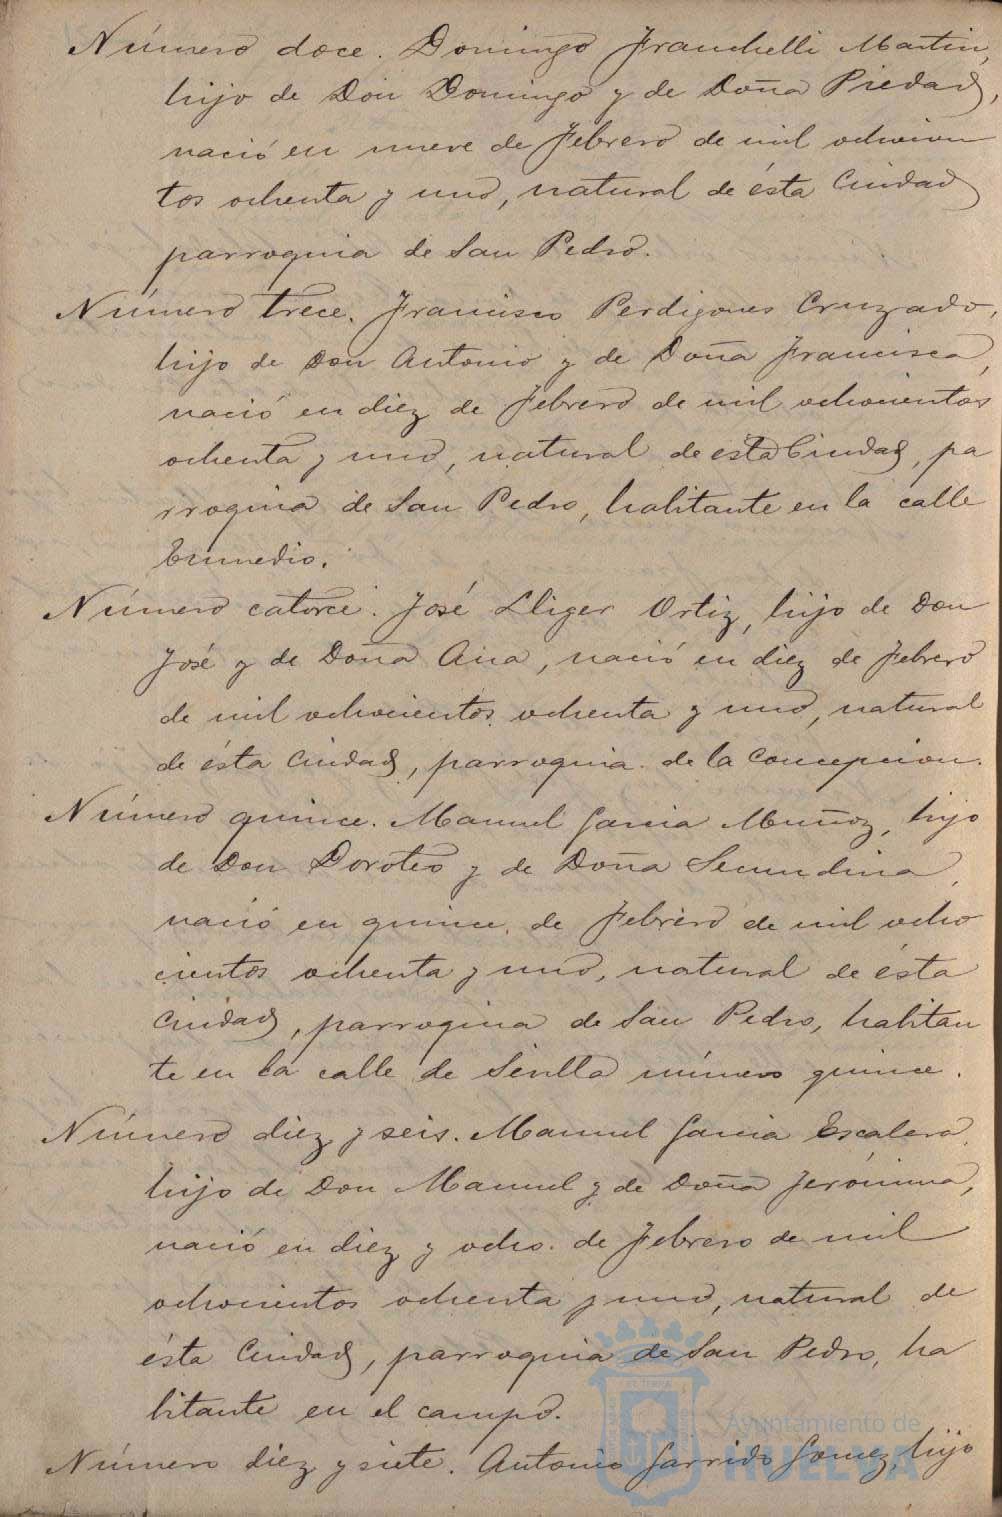 Número doce. Domingo Franchelli Martin,
hijo de Don Domingo y de Doña Piedad,
nació en nueve de Febrero de mil ochocien
tos ochenta y uno, natural de ésta Ciudad
parroquia de San Pedro.
Número trece. Francisco Perdigones Cruzado,
hijo de Don Antonio y de Doña Francisca,
nació en diez de Febrero de mil ochocientos
ochenta y uno, natural de esta Ciudad, pa
rroquia de San Pedro, habitante en la calle
Enmedio.
Número catorce. José Lliger Ortiz, hijo de Don
José y de Doña Ana, nació en diez de Febrero
de mil ochocientos ochenta y uno, natural
de ésta Ciudad, parroquia de la Concepcion.
Número quince. Manuel Garcia Muñoz, hijo
de Don Doroteo y de Doña Secundina,
nació en quince de Febrero de mil ocho
cientos ochenta y uno, natural de ésta
Ciudad, parroquia de San Pedro, habitan
te en la calle de Sevilla número quince.
Número diez y seis. Manuel Garcia Escalera,
hijo de Don Manuel y de Doña Jerónima,
nació en diez y ocho de Febrero de mil
ochocientos ochenta y uno, natural de
ésta Ciudad, parroquia de San Pedro, ha
bitante en el campo.
Número diez y siete. Antonio Garrido Gomez, hijo
Ayuntamiento de
HUELVA